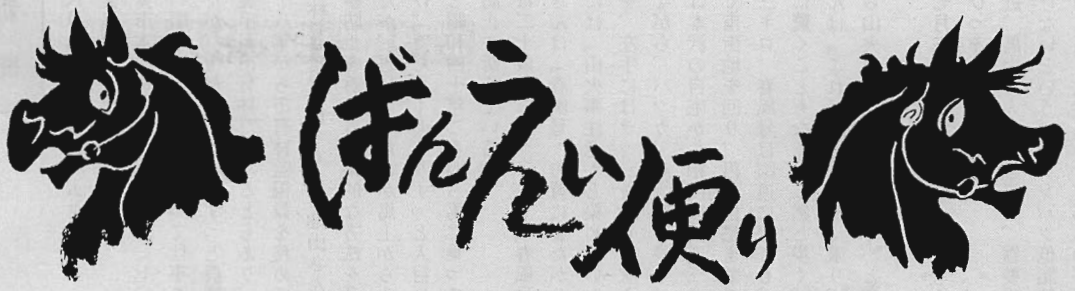 ばんえい便り